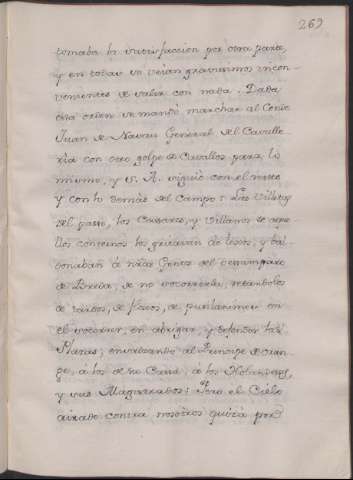 269
tomaba la satisfaccion por otra parte,
y en todas se veian gravisimos incon-
venientes de valer con nada. Dada
esta orden se mandó marchar al Conde
Juan de Nasau General de la Cavalle-
ría con otro golpe de Cavallos para lo
mismo, y S. A. siguió con el resto
y con lo demas del Campo: Las Villas
del passo, los Casares, y Villanos de aque-
llos contornos los gritavan de lexos, y bal-
donaban á nras Gentes del desamparo
de Breda, de no socorrerla, retandolos
de tardos, de flacos, de pusilanimes en
el socorrer, en abrigar, y defender las
Plazas; ensalzando al Principe de Oran-
ge, á los de su Casa, á los Holandeses,
y sus Magistrados; Pero el Cielo
airado contra nosotros quizá por